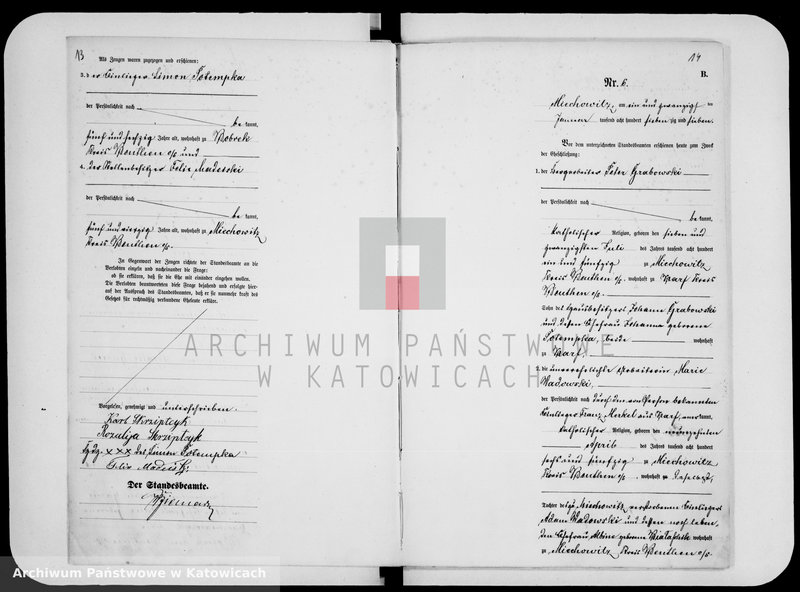 13
Als Zeugen waren zugezogen und erschienen:
3. der Einlieger Simon Potempka
der Persönlichkeit nach
be kannt,
fünf und sechzig Jahre alt, wohnhaft zu Bobrek
Kreis Beuthen o/s und
4. der Stellenbesitzer Felix
der Persönlichkeit nach
be kannt,
fünf und vierzig Jahre alt, wohnhaft zu Miechowitz
Kreis Beuthen o/s.
In Gegenwart der Zeugen richtete der Standesbeamte an die
Verlobten einzeln und nacheinander die Frage:
ob sie erklären, daß sie die Ehe mit einander eingehen wollen.
Die Verlobten beantworteten diese Frage bejahend und erfolgte hier-
auf der Ausspruch des Standesbeamten, daß er sie nunmehr kraft des
Gesetzes für rechtmäßig verbundene Eheleute erkläre.
Vorgelesen, genehmigt und unterschrieben.
Karl Skrziptzyk
Rozalija Skrzyptzyk
Hdz. xxx des Simon Potempka
Felix
Der Standesbeamte.
14
B.
Nr. 6.
Miechowitz, am ein und zwanzigsten
Januar tausend acht hundert sieben zig und sieben.
Vor dem unterzeichneten Standesbeamten erschienen heute zum Zweck
der Eheschließung:
1. der Bergarbeiter Peter Grabowski
der Persönlichkeit nach
be kannt,
katholischer Religion, geboren den sieben und
zwanzigsten Juli des Jahres tausend acht hundert
ein und fünfzig zu Miechowitz
Kreis Beuthen o/s., wohnhaft zu Karf Kreis
Beuthen o/s.
Sohn des Hausbesitzers Johann Grabowski
und dessen Ehefrau Johanna geborene
Potempka, beide wohnhaft
zu Karf
2. die unverehelichte Arbeiterin Marie
Wadowski,
der Persönlichkeit nach durch den von Person bekannten
Einlieger Franz Merkel aus Karf, anerkannt,
katholischer Religion, geboren den neunzehnten
April des Jahres tausend acht hundert
sechs und fünfzig zu Miechowitz
Kreis Beuthen o/s., wohnhaft zu daselbst,
Tochter des zu Miechowitz verstorbenen Einliegers
Adam Wadowski und dessen noch leben,
den Ehefrau Albine geborene wohnhaft
zu Miechowitz Kreis Beuthen o/s.
ARCHIWUM PAŃSTWOWE
W KATOWICACH
Archiwum Państwowe w Katowicach